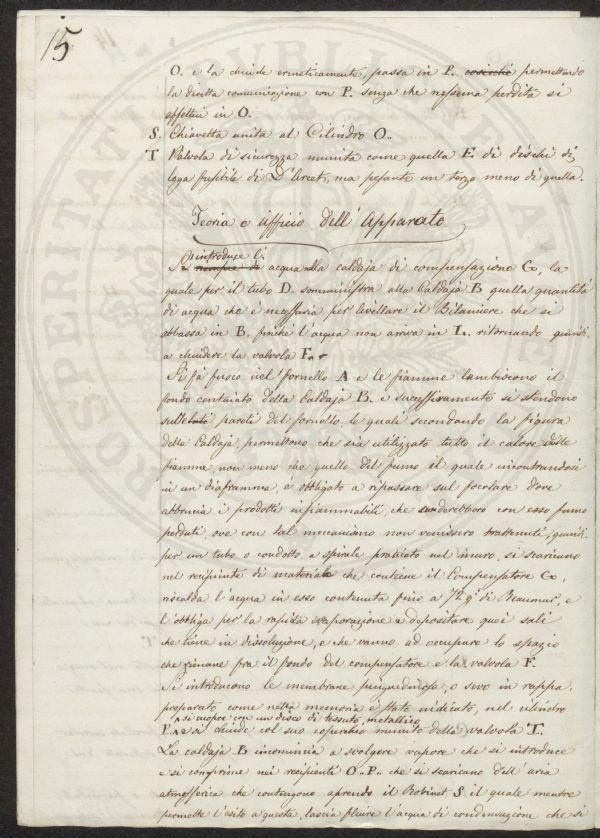 15
O. e la chiude ermeticamente, passa in P. permettendo
la diretta comunicazione con P. senza che nessuna perdita si
effettui in O.
S. Chiavetta unita al Cilindro O..
T Valvola di sicurezza munita come quella E di dischi di
lega fusibile di D'Arcet, ma pesante un terzo meno di quella.
Teoria e ufficio dell'Apparato
introduce l'
Si acqua nella caldaja di compensazione G, la
quale per il tubo D somministra alla Caldaja B quella quantità
di acqua che è necessaria per livellare il Bilanciere che si
abbassa in B. finchè l'acqua non arriva in L. ritornando quindi
a chiudere la valvola F.
Si fà fuoco nel fornello A e le fiamme lambiscono il
fondo centinato della Caldaja B. e successivamente si stendono
pareti del fornello, le quali secondando la figura
della Caldaja, permettono che sia utilizzato tutto il calore delle
fiamme, non meno che quello del fumo il quale incontrandosi
in un diaframma, è obbligato a ripassare sul focolare dove
abbrucia i prodotti infiammabili, che anderebbero con esso fumo
perduti, ove con tal meccanismo non venissero trattenuti; quindi
per un tubo o condotto a spirale praticato nel muro, si scaricano
nel recipiente di materiale che contiene il Compensatore G,
riscalda l'acqua in esso contenuta fino a di Reaumur, e
l'obbliga per la rapida evaporazione a depositare quei sali
che tiene in dissoluzione, e che vanno ad occupare lo spazio
che rimane fra il fondo del compensatore e la valvola F.
Si introducono le membrane pinguedinose, o sevo in rappa,
preparato come nella memoria è stato indicato, nel cilindro
si cuopre con un disco di tessuto metallico
P. e si chiude col suo coperchio munito della valvola T.
La caldaja B incomincia a svolgere vapore che si introduce
e si comprime nei recipienti O.. P.. che si scaricano dell'aria
atmosferica che contengono aprendo il Robinet S il quale mentre
permette l'esito a questa, lascia fluire l'acqua di condensazione che si